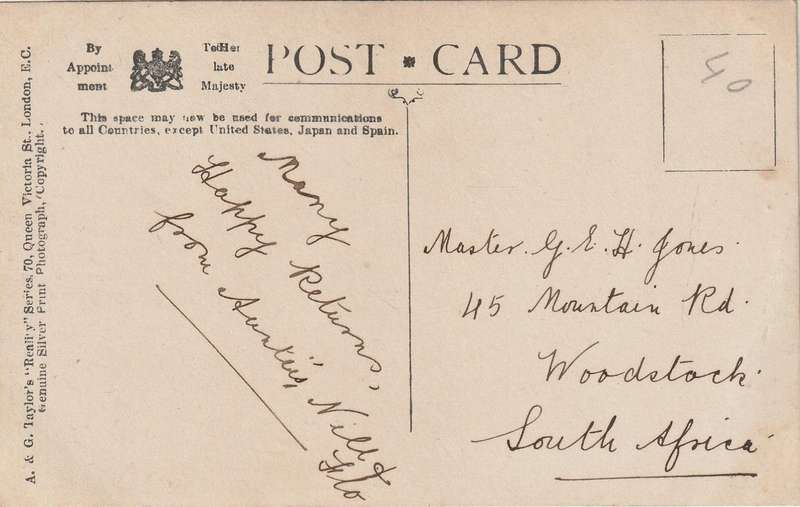 By
Appoint
ment
To Her
late
Majesty
POST CARD
This space may now be used for communications
to all Countries, except United States, Japan and Spain.
A. & G. Taylor's "Reality" Series, 70, Queen Victoria St., London, E.C.
Genuine Silver Print Photograph, Copyright.
40
Many
Happy Returns,
from Auntie's, Nill &
Flo
Master. G. E. H. Jones.
45 Mountain Rd.
Woodstock.
South Africa